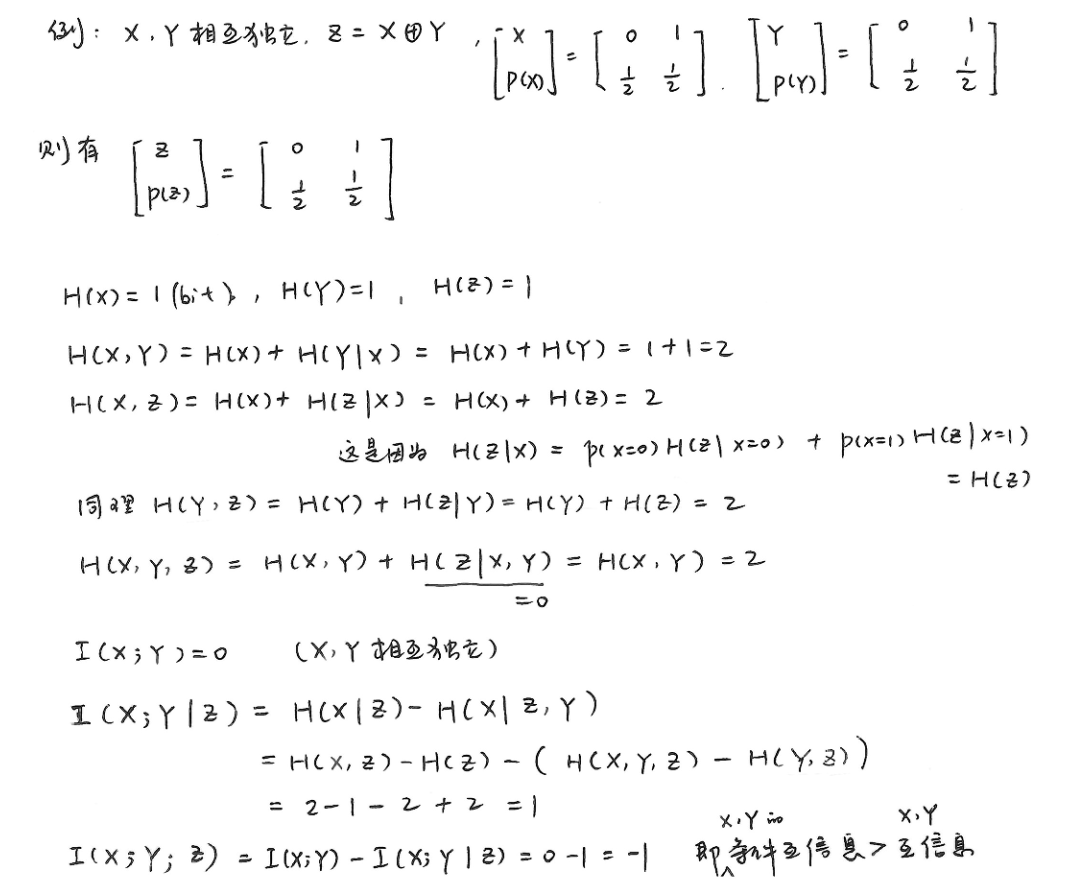 例：X，Y 相互独立，Z = X ⊕ Y，[X P(X)] = [0 1 1/2 1/2]．[Y P(Y)] = [0 1 1/2 1/2]
则有 [Z P(Z)] = [0 1 1/2 1/2]
H(X) = 1 (bit)，H(Y)=1，H(Z) = 1
H(X,Y) = H(X) + H(Y|X) = H(X) + H(Y) = 1+1=2
H(X,Z) = H(X) + H(Z|X) = H(X) + H(Z) = 2
这是因为 H(Z|X) = p(X=0) H(Z|X=0) + p(X=1) H(Z|X=1)
= H(Z)
同理 H(Y,Z) = H(Y) + H(Z|Y) = H(Y) + H(Z) = 2
H(X,Y,Z) = H(X,Y) + H(Z|X,Y) = H(X,Y) = 2
=0
I(X;Y)=0 (X,Y 相互独立)
I(X;Y|Z) = H(X|Z) - H(X|Z,Y)
= H(X,Z) - H(Z) - (H(X,Y,Z) - H(Y,Z))
= 2-1-2+2 = 1
I(X;Y;Z) = I(X;Y) - I(X;Y|Z) = 0-1 = -1 即 X,Y的 条件互信息 > X,Y 互信息